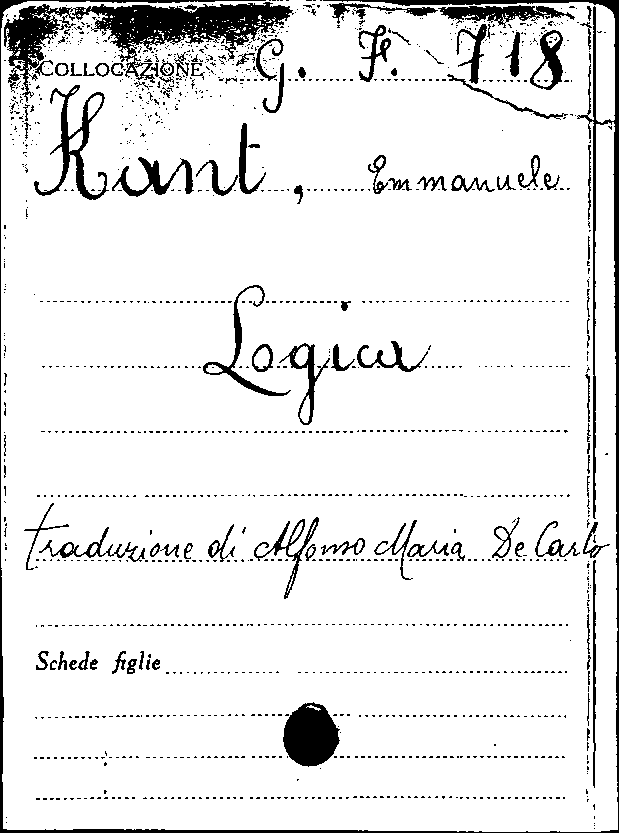 COLLOCAZIONE G. F. 718
Kant, Emmanuele
Logica
traduzione di Alfonso Maria De Carlo
Schede figlie